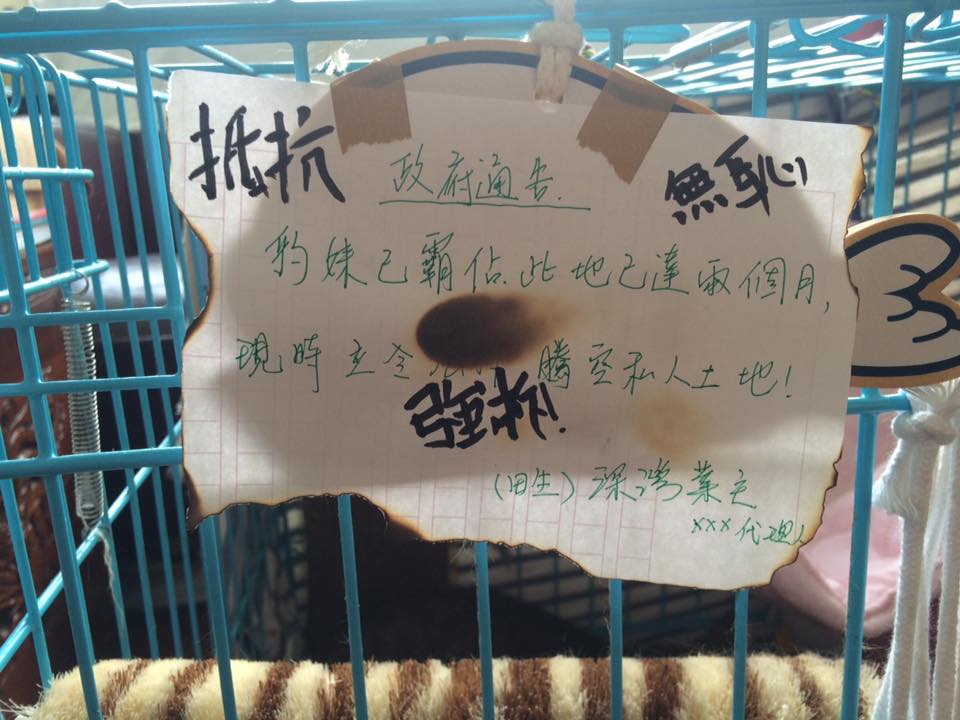 抵抗
無恥
政府通告.
豹妹已霸佔此地已達兩個月,
現時立令 騰空私人土地!
強拆!
(田生) 深灣業主
xxx 代理人